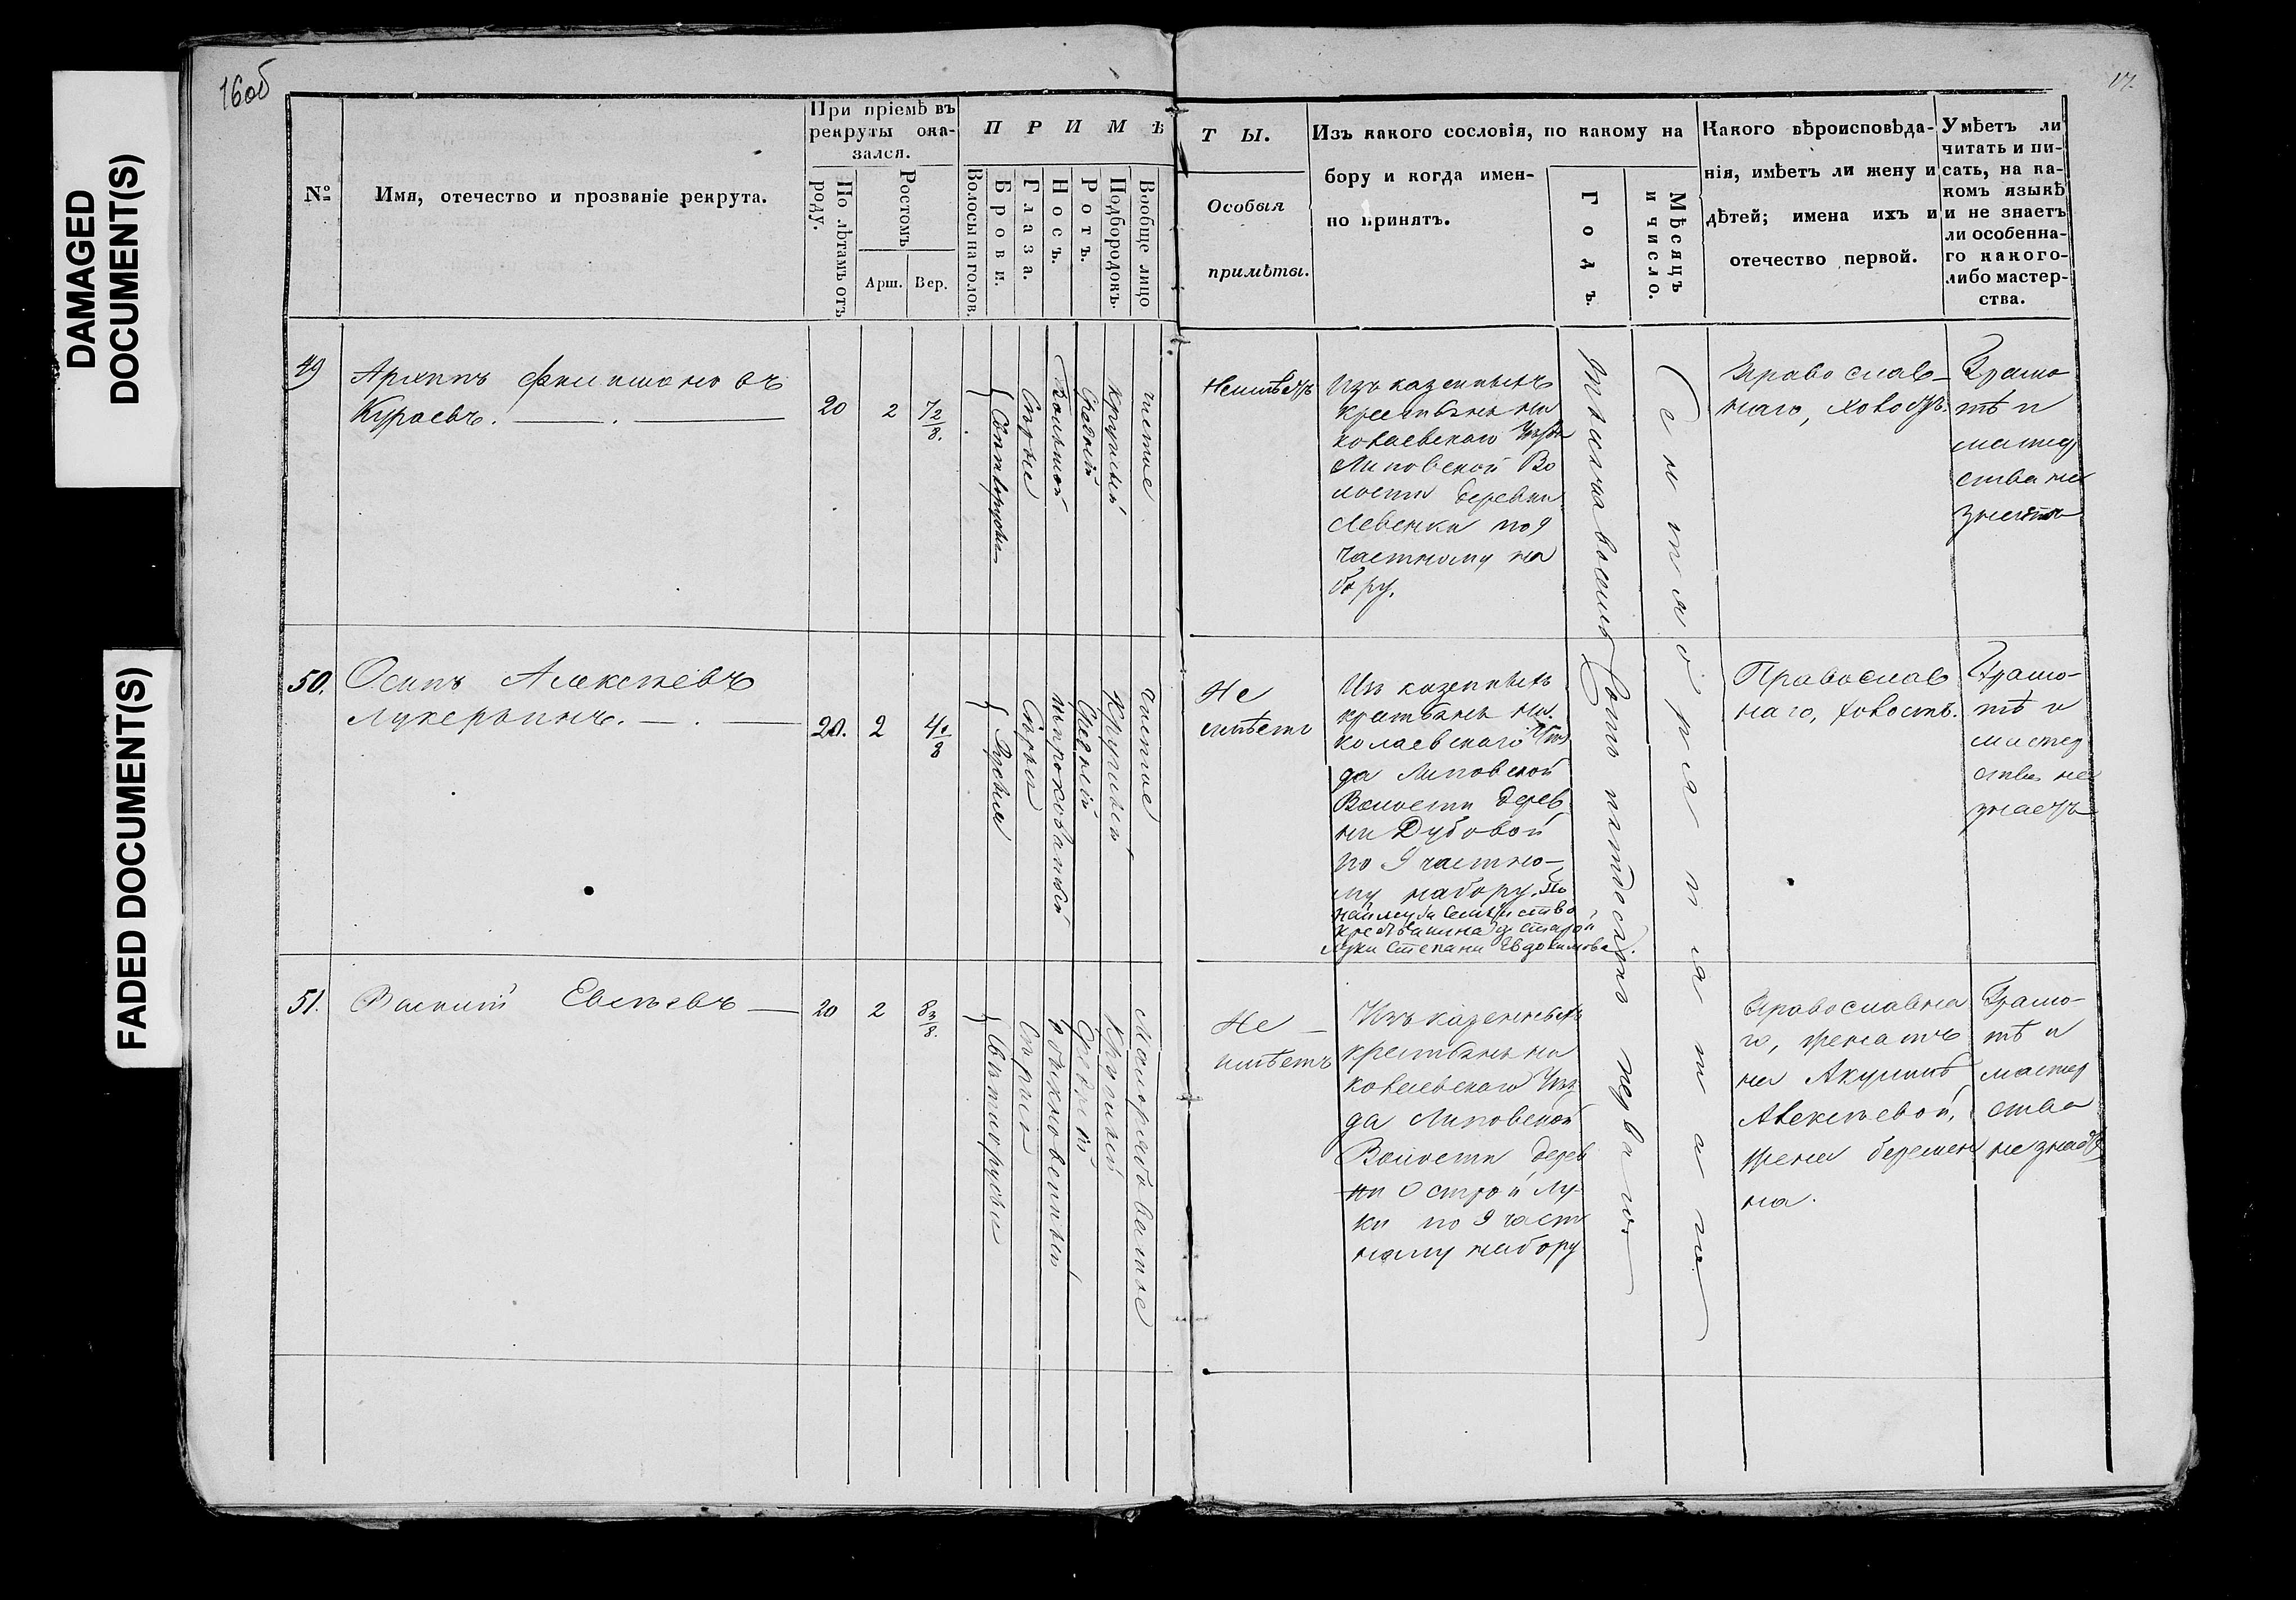 DAMAGED
DOCUMENT(S)
FADED DOCUMENT(S)
16об
17.
№
Имя, отечество и прозваніе рекрута.
При пріемѣ въ
рекруты ока-
зался.
По лѣтамъ отъ
роду.
Ростомъ
Арш.
Вер.
П Р И М Ѣ
Волосы на голов.
Брови.
Глаза.
Носъ.
Ротъ.
Подбородокъ.
Вообще лицо
Т Ы.
Особыя
примѣты.
Изъ какого сословія, по какому на
бору и когда имен-
но принятъ.
Годъ.
Мѣсяцъ
и число.
Какого вѣроисповѣда-
нія, имѣетъ ли жену и
дѣтей; имена ихъ и
отечество первой.
Умѣетъ ли
читать и пи-
сать, на ка-
комъ языкѣ
и не знаетъ
ли особенна-
го какого-
либо мастер-
ства.
49
Архипъ
Кураевъ.
20
2
7 2/8.
Свѣтлорусые
Сѣрые
Большой
Средній
Круглый
чистое
Неимѣетъ
Изъ казенныхъ
крестьянъ Ни
колаевскаго Уѣзда
Липовской Во
лости деревни
Левенки по 9
частному на
бору.
Православ-
наго, холостъ.
Грамо
тѣ и
мастер
ства не
знаетъ
50.
Осипъ Алексѣевъ
Лукерьинъ.
20.
2
4 1/8
Русые
Сѣрые
широковатый
Средній
Круглый
чистое
Не
имѣетъ
Изъ казенныхъ
крестьянъ Ни
колаевскаго Уѣз
да Липовской
Волости дерев
ни Дубовой
по 9 частно-
му набору. По
найму за семейство
крестьянина
Луки Степана Евдокимова.
Православ
наго, холостъ.
Грамо-
тѣ и
мастер
ства не
знаетъ
51.
Василій Евсѣевъ
20
2
8 3/8.
Свѣтлорусые
Сѣрые
обыкновенный
Средній
Круглый
Малорябоватое
Не
имѣетъ
Изъ казенныхъ
крестьянъ Ни
колаевскаго Уѣз
да Липовской
Волости дерев
ни Острой Лу-
ки по 9 част
ному набору
Тысяча восемьсотъ пятдесятъ перваго
Сентября пятаго
Православна
го, женатъ
на Акулинѣ
Алексѣевой,
жена беремен
на.
Грамо-
тѣ и
мастер
ства
не знаетъ